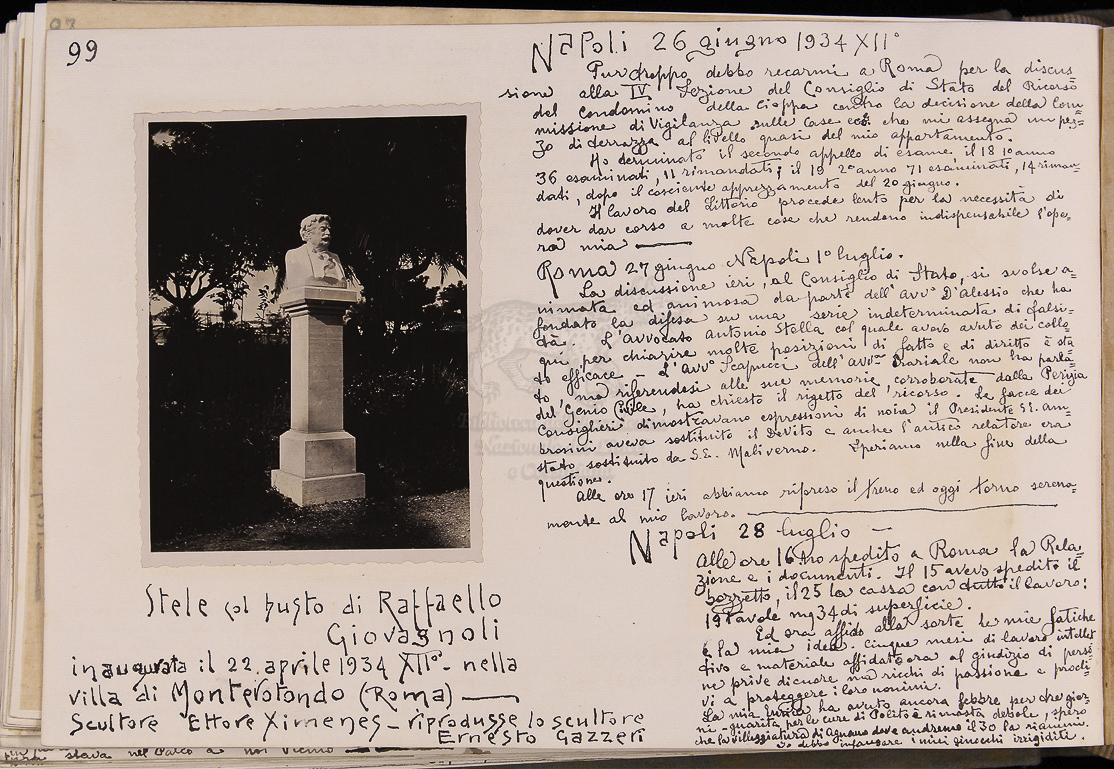 99
Stele col busto di Raffaello
Giovagnoli
inaugurata il 22 aprile 1934 XII° - nella
villa di Monterotondo (Roma) —
Scultore Ettore Ximenes - riprodusse lo scultore
Ernesto Gazzeri
Napoli 26 giugno 1934 XII°
Purtroppo debbo recarmi a Roma per la discus-
sione alla IV Sezione del Consiglio di Stato del Ricorso
del condomino della Cioppa contro la decisione della Com
missione di Vigilanza sulle Case ec. che mi assegna un pez-
zo di terrazza al livello quasi del mio appartamento.
Ho terminato il secondo appello di esame, il 18 1° anno
36 esaminati, 11 rimandati; il 19 2° anno 71 esaminati, 14 riman-
dati, dopo il cosciente apprezzamento del 20 giugno.
Il lavoro del Littorio procede lento per la necessità di
dover dar corso a molte cose che rendono indispensabile l'ope-
ra mia —
Roma 27 giugno Napoli 1° luglio.
La discussione ieri, al Consiglio di Stato, si svolse a-
nimata ed animosa da parte dell'avv° D'Alessio che ha
fondato la difesa su una serie indeterminata di falsi-
tà. L'avvocato Antonio Stella col quale avevo avuto dei collo-
qui per chiarire molte posizioni di fatto e di diritto è sta-
to efficace - L'avv° Scapucci dell'avv^ra Erariale non ha parla-
to, ma riferendosi alle sue memorie, corroborate dalla Perizia
del Genio Civile, ha chiesto il rigetto del ricorso. Le facce dei
Consiglieri dimostravano espressioni di noia il Presidente S.E. am-
brosini aveva sostituito il DeVito e anche l'antico relatore era
stato sostituito da S.E. Maliverno. Speriamo nella fine della
questione.
Alle ore 17 ieri abbiamo ripreso il treno ed oggi torno serena-
mente al mio lavoro.
Napoli 28 luglio —
Alle ore 16 ho spedito a Roma la Rela-
zione e i documenti. Il 15 avevo spedito il
bozzetto, il 25 la cassa con tutto il lavoro:
19 tavole mq 34 di superficie.
Ed ora affido alla sorte le mie fatiche
e la mia idea. Cinque mesi di lavoro intellet
tivo e materiale affidato ora al giudizio di perso-
ne prive di cuore ma ricchi di passione e procli-
vi a proteggere i loro nomini.
La mia ha avuto ancora febbre per tre gior-
ni - guarita per le cure di Polito è rimasta debole, spero
che la villeggiatura di Agnano dove andremo il 30 la rianimi.
Io debbo infangare i miei ginocchi irrigiditi.
Biblioteca
Nazionale
stava nel Palco a noi Vicino